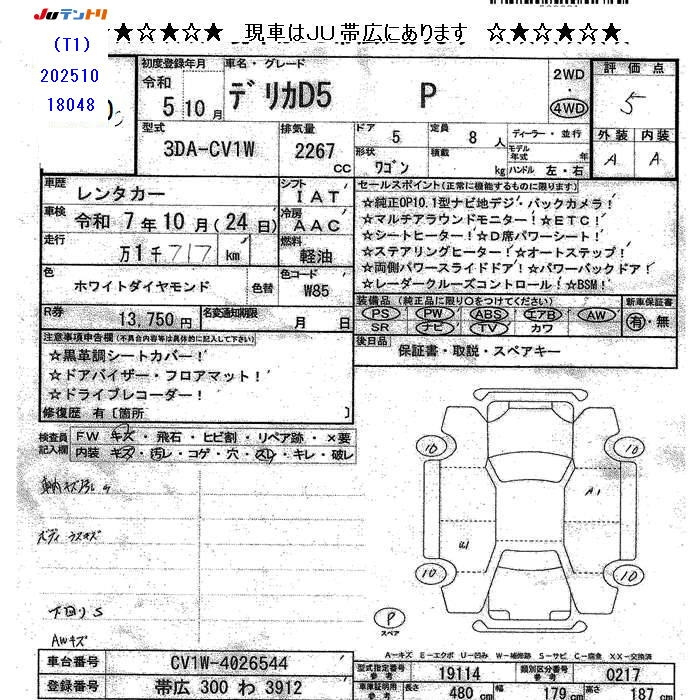 Juテントリ
★☆★☆★☆ 現車はJU帯広にあります ☆★☆★☆★
(T1)
202510
18048
初度登録年月
令和
5 10 月
車名・グレード
デリカD5 P
2WD
・
4WD
評価点
5
型式
3DA-CV1W
排気量
2267 cc
ドア 5
定員 8 人
ディーラー・並行
形状 ワゴン
積載 kg
モデル年式 年
ハンドル 左・右
外装 内装
A A
車歴 レンタカー
シフト IAT
車検 令和 7年 10月(24日)
冷房 AAC
走行 万1千717 km
燃料 軽油
色 ホワイトダイヤモンド
色替
色コード W85
セールスポイント(正常に機能するものに限ります)
☆純正OP10.1型ナビ地デジ・バックカメラ!
☆マルチアラウンドモニター!☆ETC!
☆シートヒーター!☆D席パワーシート!
☆ステアリングヒーター!☆オートステップ!
☆両側パワースライドドア!☆パワーバックドア!
☆レーダークルーズコントロール!☆BSM!
R券 13,750円
名変通知期限 月 日
装備品(純正品に限り○をつけてください)
PS PW ABS エアB AW
SR ナビ TV カワ
新車保証書
有・無
後日品 保証書・取説・スペアキー
注意事項申告欄(不具合内容等は具体的に記入して下さい)
☆黒革調シートカバー!
☆ドアバイザー・フロアマット!
☆ドライブレコーダー!
修復歴 有〔箇所 〕
検査員記入欄
FW キズ・飛石・ヒビ割・リペア跡・×要
内装 キズ・汚レ・コゲ・穴・スレ・キレ・破レ
ボディ ウスキズ
下回りS
AWキズ
10 10
A1
U1
10 10
P
スペア
A-キズ E-エクボ U-凹み W-補修跡 S-サビ C-腐食 XX-交換済
車台番号 CV1W-4026544
登録番号 帯広 300 わ 3912
型式指定番号参考 19114
類別区分番号参考 0217
車庫証明用参考
長さ 480 cm
幅 179 cm
高さ 187 cm